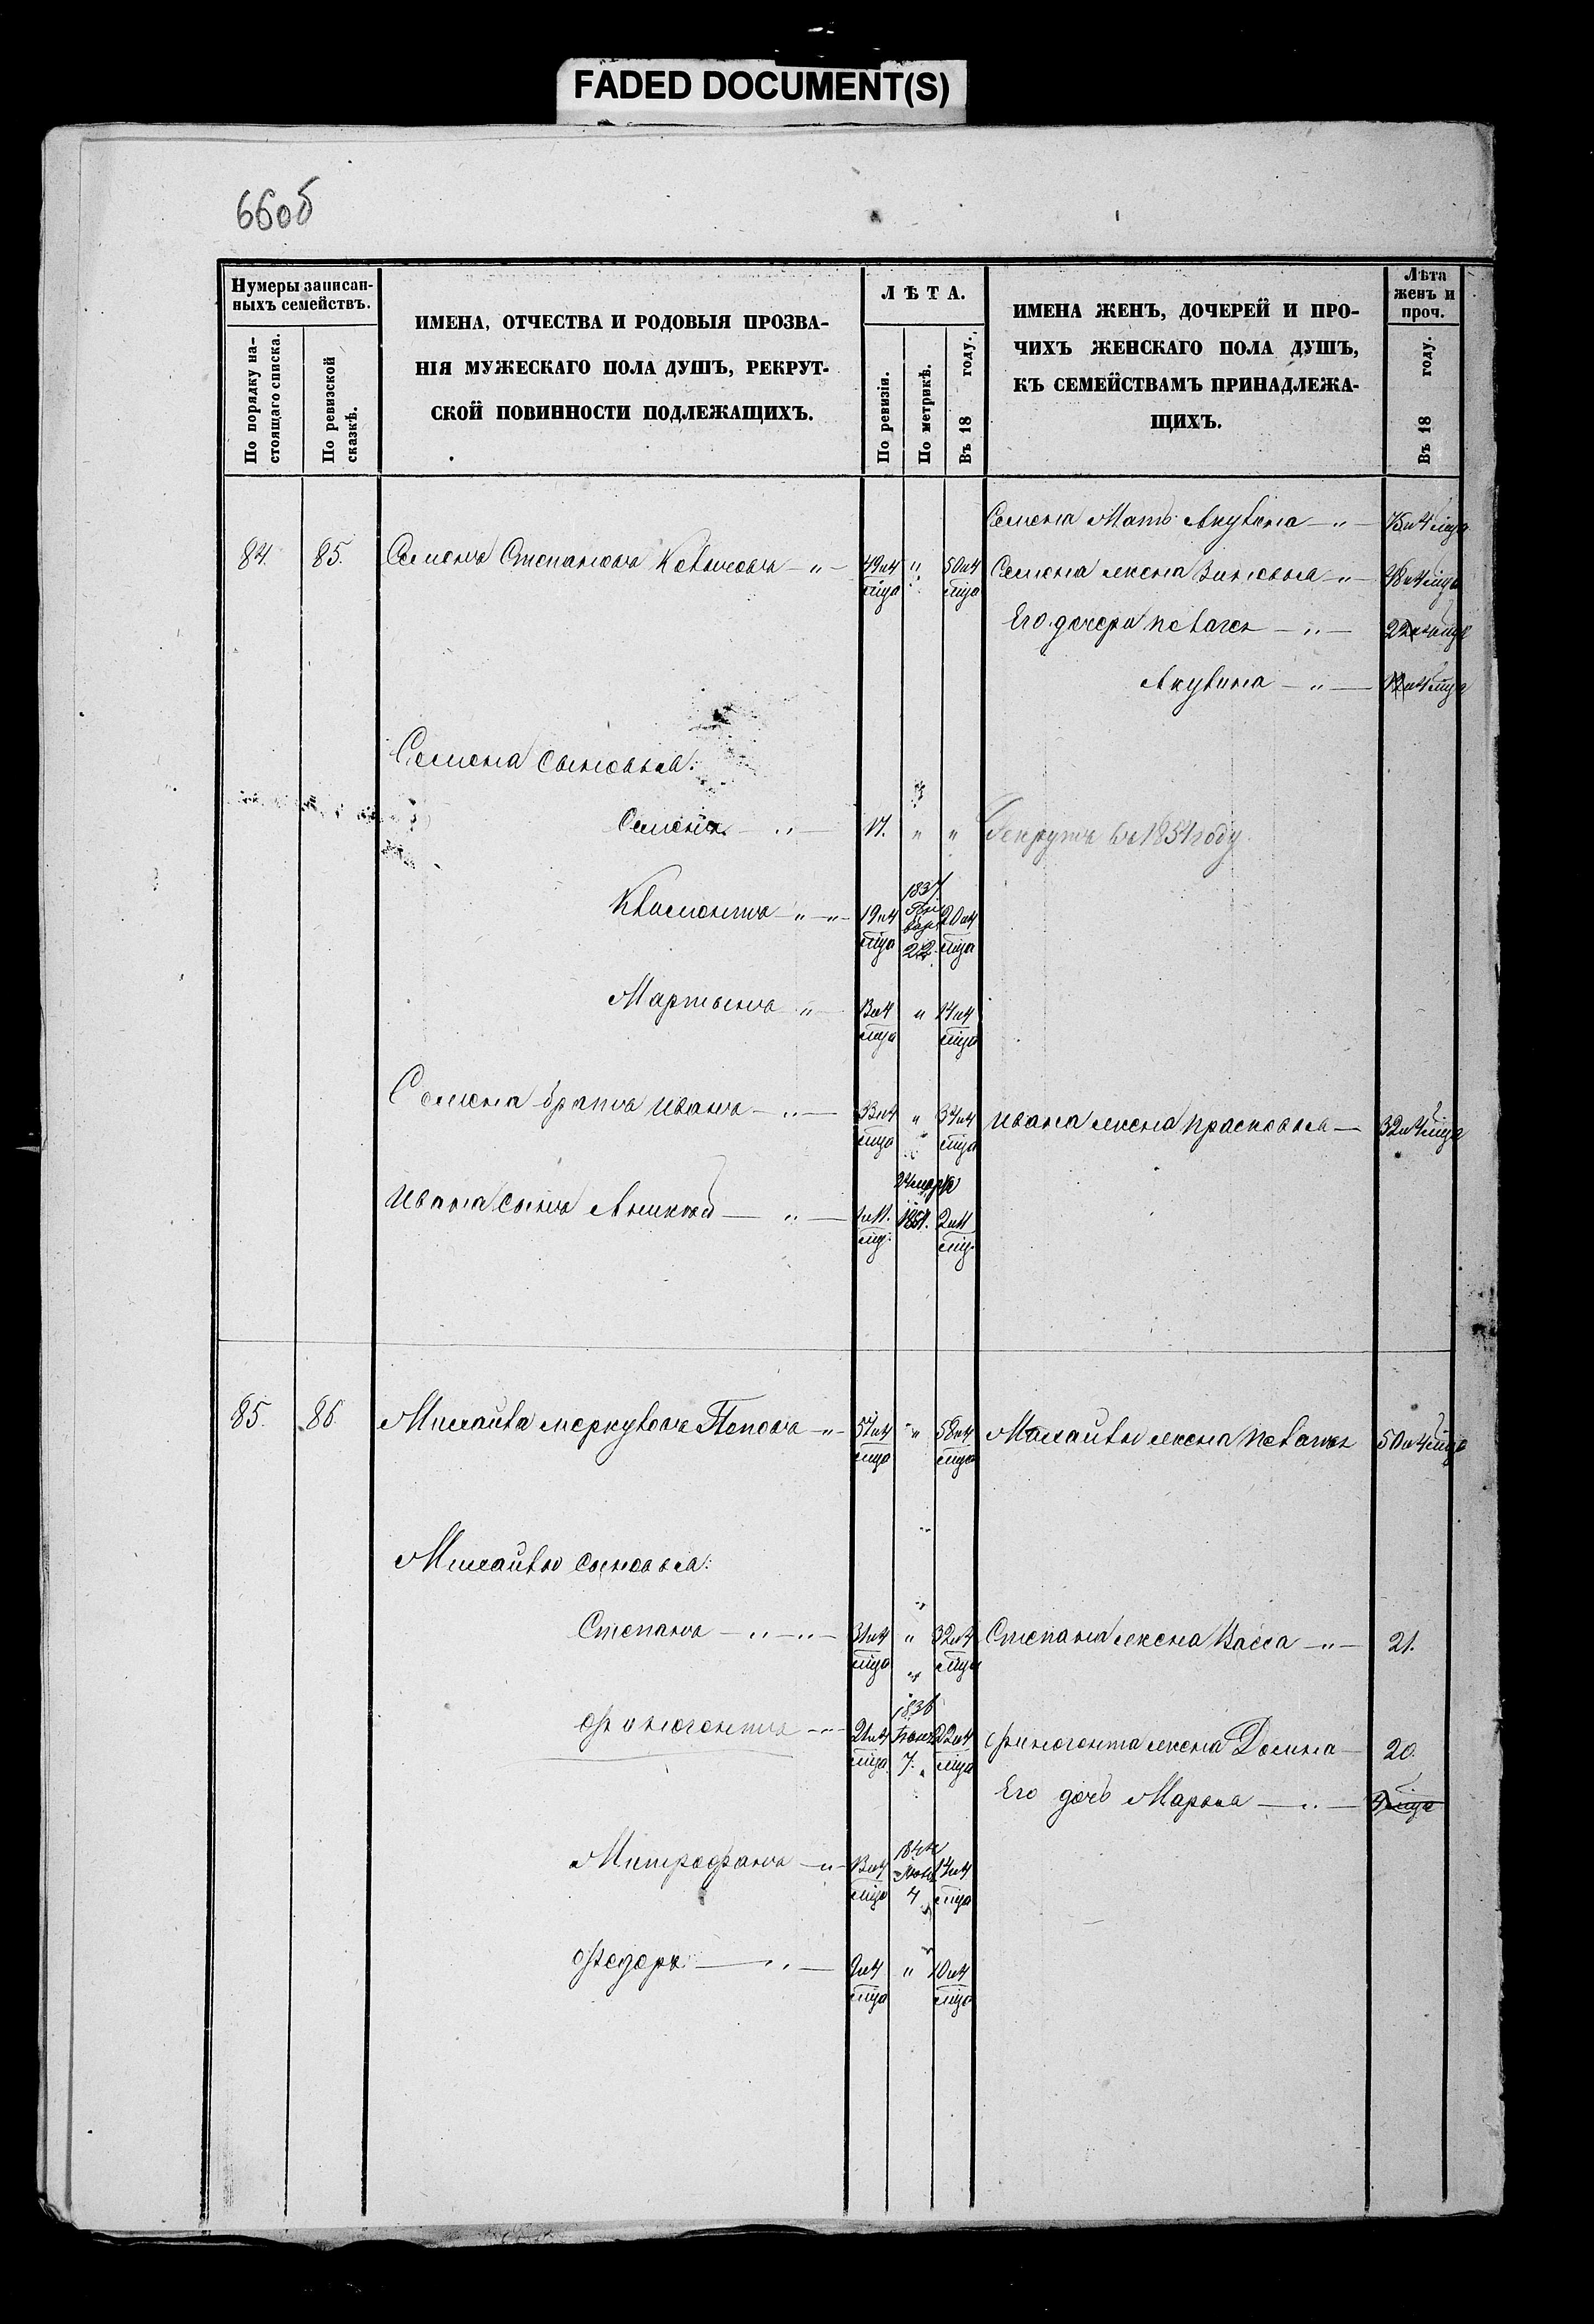 FADED DOCUMENT(S)
66об
Нумеры записан-
ныхъ семействъ.
По порядку на-
стоящаго списка.
По ревизской
сказкѣ.
ИМЕНА, ОТЧЕСТВА И РОДОВЫЯ ПРОЗВА-
НІЯ МУЖЕСКАГО ПОЛА ДУШЪ, РЕКРУТ-
СКОЙ ПОВИННОСТИ ПОДЛЕЖАЩИХЪ.
ЛѢТА.
По ревизіи.
По метрикѣ.
Въ 18 году.
ИМЕНА ЖЕНЪ, ДОЧЕРЕЙ И ПРО-
ЧИХЪ ЖЕНСКАГО ПОЛА ДУШЪ,
КЪ СЕМЕЙСТВАМЪ ПРИНАДЛЕЖА-
ЩИХЪ.
Лѣта
женъ и
проч.
Въ 18 году.
Семена Мать Акулина — " — 75 и 4 мца
84. 85. Семенъ Степановъ — " — 49 и 4 мца " 50 и 4 мца Семена жена Зиновья — " — 48 и 4 мца
Его дочери Пелагея — " —
Акулина — " —
Семена сыновья:
Семенъ — " — 17. " " Рекрутъ въ 1854 году
Климентъ — " — " — 19 и 4 мца 1837 22 20 и 4 мца
Мартынъ " — 13 и 4 мца " 14 и 4 мца
Семена братъ Иванъ — " — 33 и 4 мца " 34 и 4 мца Ивана жена Прасковья — 32 и 4 мца
Ивана сынъ Аникей — " — 1 и 11. мц. 24 марта 1854. 2 и 11 мц.
85. 86. Михайла Меркуловъ Поповъ — " — 57 и 4 мца " 58 и 4 мца Михайлы жена Пелагея 50 и 4 мца
Михайлы сыновья:
Степанъ — " — " — 31 и 4 мца " 32 и 4 мца Степана жена Васса — " — 21.
Финогентъ — " — 21 и 4 мца 1836 7. 22 и 4 мца Финогента жена Домна — 20.
Его дочь Марья — " — 4 мца
Митрофанъ — " — 13 и 4 мца 4 14 и 4 мца
Федоръ — " — 9 и 4 мца " 10 и 4 мца